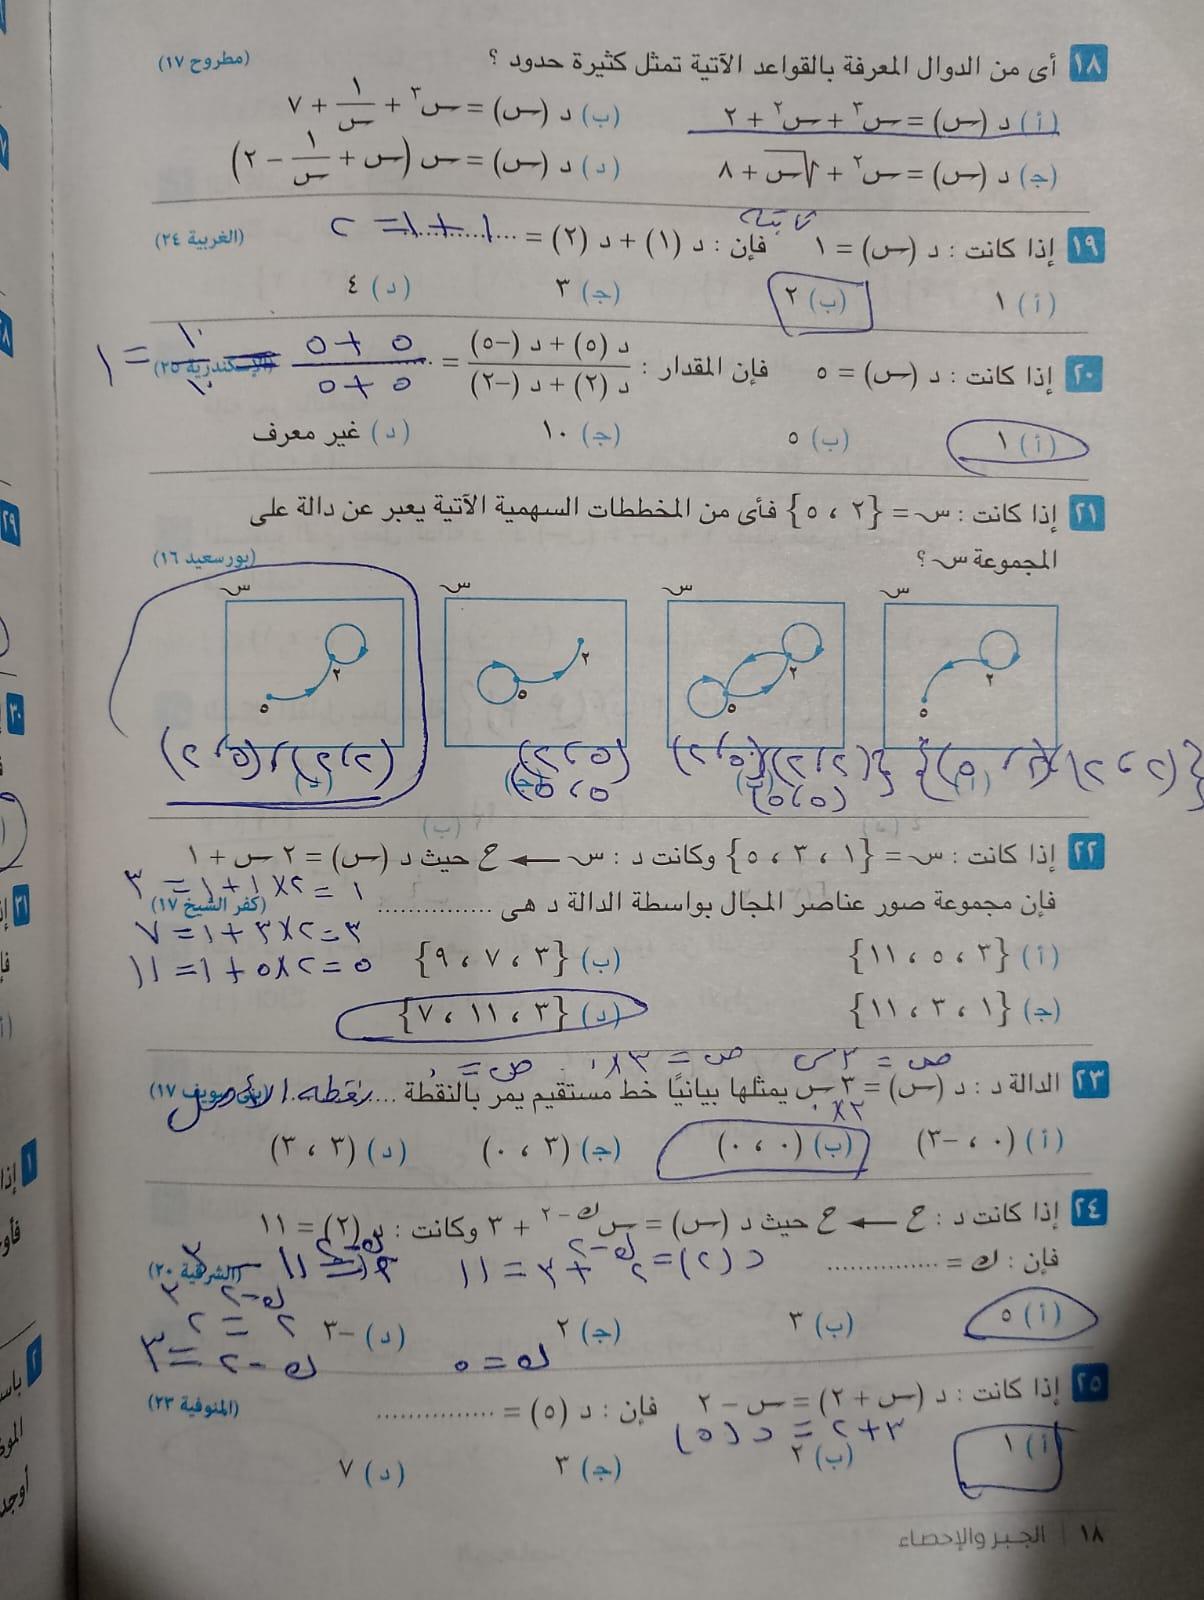 ١٨ أى من الدوال المعرفة بالقواعد الآتية تمثل كثيرة حدود ؟ (مطروح ١٧)
(أ) د (س) = س³ + س² + ٢ (ب) د (س) = س³ + ١/س + ٧
(ج) د (س) = س² + √س + ٨ (د) د (س) = س (س + ١/س − ٢)
ثابتة
١٩ إذا كانت : د (س) = ١ فإن : د (١) + د (٢) = ............... ١ + ١ = ٢ (الغربية ٢٤)
(أ) ١ (ب) ٢ (ج) ٣ (د) ٤
٢٠ إذا كانت : د (س) = ٥ فإن المقدار : (د (٥) + د (−٥)) / (د (٢) + د (−٢)) = (٥ + ٥) / (٥ + ٥) = ١٠ / ١٠ = ١ (الإسكندرية ٢٥)
(أ) ١ (ب) ٥ (ج) ١٠ (د) غير معرف
٢١ إذا كانت : س = {٢ ، ٥} فأى من المخططات السهمية الآتية يعبر عن دالة على
المجموعة س ؟ (بورسعيد ١٦)
س س س س
٢ ٢ ٢ ٢
٥ ٥ ٥ ٥
(٢،٢) (٢،٥) (٢،٢) (٢،٥) (٢،٢) ، (٢،٥)
(٥،٥) (٥،٥)
(أ) (ب) (ج) (د)
٢٢ إذا كانت : س = {١ ، ٣ ، ٥} وكانت د : س ← ح حيث د (س) = ٢ س + ١
١ = ٢×١+١ = ٣
فإن مجموعة صور عناصر المجال بواسطة الدالة د هى ............... (كفر الشيخ ١٧)
٣ = ٢×٣+١ = ٧
(أ) {٣ ، ٥ ، ١١} (ب) {٣ ، ٧ ، ٩}
٥ = ٢×٥+١ = ١١
(ج) {١ ، ٣ ، ١١} (د) {٣ ، ١١ ، ٧}
ص = ٣س ص = ٣×٠ ص = ٠
٢٣ الدالة د : د (س) = ٣ س يمثلها بيانيًا خط مستقيم يمر بالنقطة ... نقطة الأصل (بنى سويف ١٧)
٣×٠
(أ) (٠ ، −٣) (ب) (٠ ، ٠) (ج) (٣ ، ٠) (د) (٣ ، ٣)
٢٤ إذا كانت د : ح ← ح حيث د (س) = س^(ك−٢) + ٣ وكانت : د (٢) = ١١
فإن : ك = ............... (الشرقية ٢٠)
د (٢) = ٢^(ك−٢) + ٣ = ١١
(أ) ٥ (ب) ٣ (ج) ٢ (د) −٣
٢^(ك−٢) = ٢³
ك−٢ = ٣
ك = ٥
٢٥ إذا كانت : د (س + ٢) = س − ٢ فإن : د (٥) = ............... (المنوفية ٢٣)
٣+٢ = د (٥)
(أ) ١ (ب) ٢ (ج) ٣ (د) ٧
١٨ | الجبر والإحصاء
٢٩
٣٠
٣١
١
إذا
٢